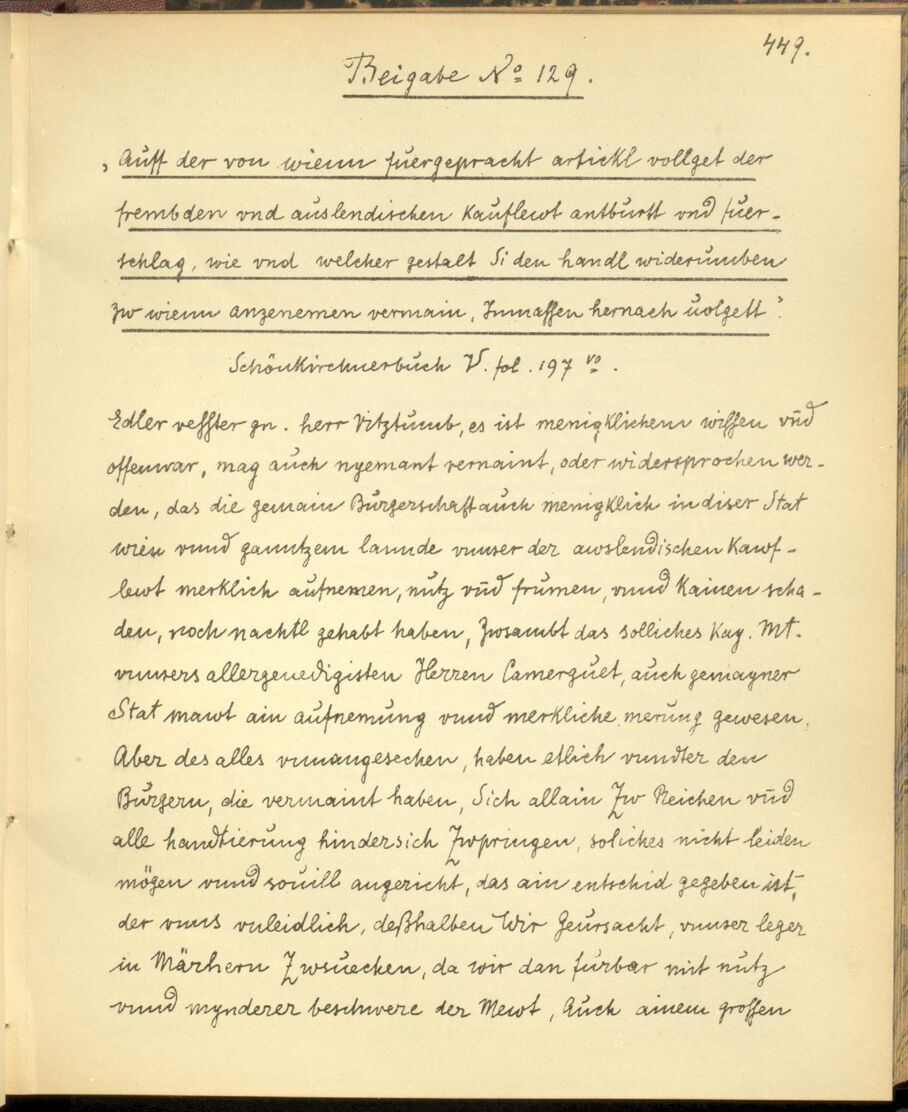 449.
Beigabe No 129.
„Auff der von wienn fuergepracht artickl vollget der
frembden vnd auslendischen Kauflewt antburtt vnd fuer-
schlag, wie vnd welcher gestalt Si den handl widerumben
zw wienn anzenemen vermain, Inmassen hernach uolgett“.
Schönkirchnerbuch V. fol. 197 vo.
Edler vesster gn. herr Vitztumb, es ist menigklichem wissen vnd
offenwar, mag auch nyemant vernaint, oder widersprochen wer-
den, das die gemain Burgerschaft auch menigklich in diser Stat
wien vnnd ganntzem lannde vnnser der awslendischen Kawf-
lewt merklich aufnemen, nutz vnd frumen, vnnd Kainen scha-
den, noch nachtl gehabt haben, Zwsambt das solliches Kay. Mt.
vnnsers allergenedigisten Herren Camerguet, auch gemayner
Stat mawt ain aufnemung vnnd merkliche merung gewesen.
Aber des alles vnnangesechen, haben etlich vnndter den
Burgern, die vermaint haben, Sich allain Zw Reichen vnd
alle handtierung hindersich Zwpringen, soliches nicht leiden
mögen vnnd souill angericht, das ain entschid gegeben ist,
der vnns vnleidlich, deßhalben Wir Geursacht, vnnser leger
in Märhern Zwsuechen, da wir dan furbar mit nutz
vnnd mynderer beschwere der Mewt, Auch ainem grossen